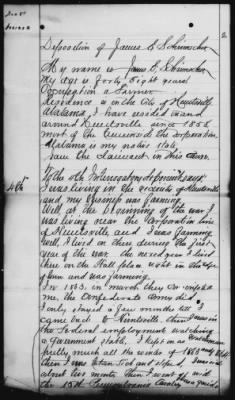 2
Deposition of James S Schrimscher
My name is James S Schrimscher
My age is forty Eight years
Occupation a Farmer.
Residence is in the City of Huntsville
Alabama, I have resided in and
around Huntsville since 1856
most of the time inside the corporation
Alabama is my native state,
I am the Claimant in this Case.
4th
To the 4th Interrogatory deponent says
I was living in the vicinity of Huntsville
and my business was farming
Well at the beginning of the war I
was living near the corporation line
of Huntsville and I was farming
well, I lived on there during the first
year of the war. The next year I lived
then on the Hall place right in the edge
of town and was farming.
In 1863, in march they conscripted
me, the Confederate army did.
I only stayed a few months till I
came back to Huntsville. Then I was in
the Federal employment watching
a government stable. I kept as watchman
pretty much all the winter of 1863 and
then I was taken sick and stopped, I was sick
about two months, then I went off with
the 15th Pennsylvania Cavalry as guide